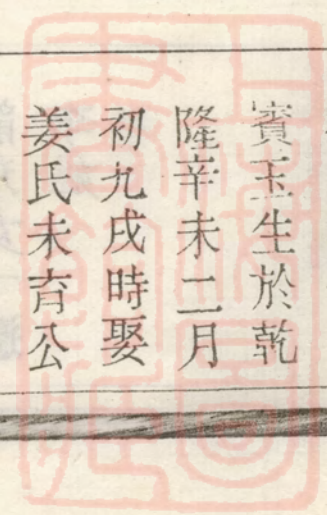 賓玉生於乾
隆辛未二月
初九戌時娶
姜氏未育公